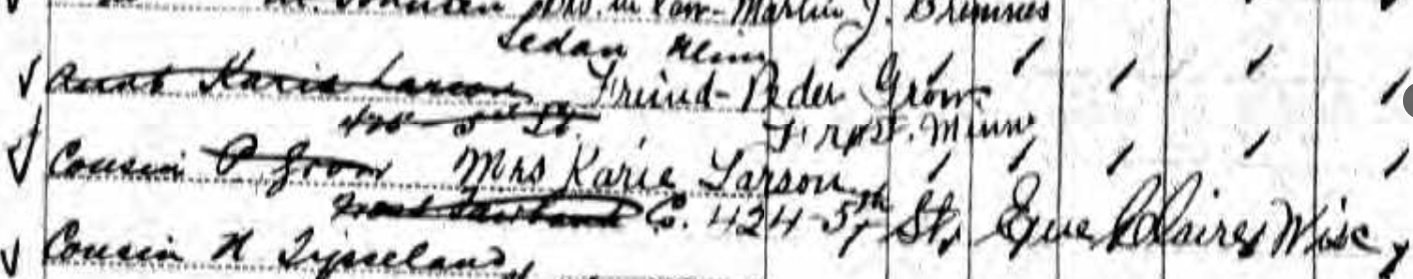 Bro. in law - Martin J. Bremnes
Sedan Minn
Aunt Karie Larson Freind - Peder Grow
420 5th St. Frost. Minn
Cousin P Grow Mrs Karie Larson
424 - 5th St, Eue Claire, Wisc
Cousin N